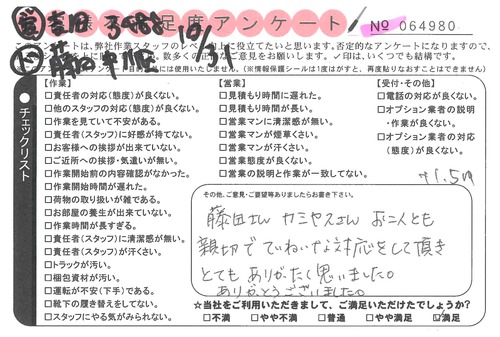 足度アンケート
№ 064980
10/31
このアンケートは、弊社作業スタッフのレベル向上に役立てたいと思います。否定的なアンケートになりますので、
✓印は、いくつでも結構です。
(※情報保護シールは1度はがすと、再度貼りなおすことはできません)
チェックリスト
【作業】
□責任者の対応(態度)が良くない。
□他のスタッフの対応(態度)が良くない。
□作業を見ていて不安がある。
□責任者(スタッフ)に好感が持てない。
□お客様への挨拶が出来ていない。
□ご近所への挨拶・気遣いが無い。
□作業開始前の内容確認がなかった。
□作業開始時間が遅れた。
□荷物の取り扱いが雑である。
□お部屋の養生が出来ていない。
□作業時間が長すぎる。
□責任者(スタッフ)に清潔感が無い。
□責任者(スタッフ)が汗くさい。
□トラックが汚い。
□梱包資材が汚い。
□運転が不安(下手)である。
□靴下の履き替えをしてない。
□スタッフにやる気がみられない。
【営業】
□見積もり時間に遅れた。
□見積もり時間が長い。
□営業マンに清潔感が無い。
□営業マンが煙草くさい。
□営業マンが汗くさい。
□営業態度が良くない。
□営業の説明と作業が一致してない。
【受付・その他】
□電話の対応が良くない。
□オプション業者の説明
・作業が良くない。
□オプション業者の対応
(態度)が良くない。
その他、ご意見・ご要望等ありましたらお書き下さい。
藤田さん カミヤスさん お二人とも
親切で ていねいな対応をして頂き
とても ありがたく思いました。
ありがとうございました。
☆当社をご利用いただきまして、ご満足いただけたでしょうか?
□不満 □やや不満 □普通 □やや満足 ☑満足